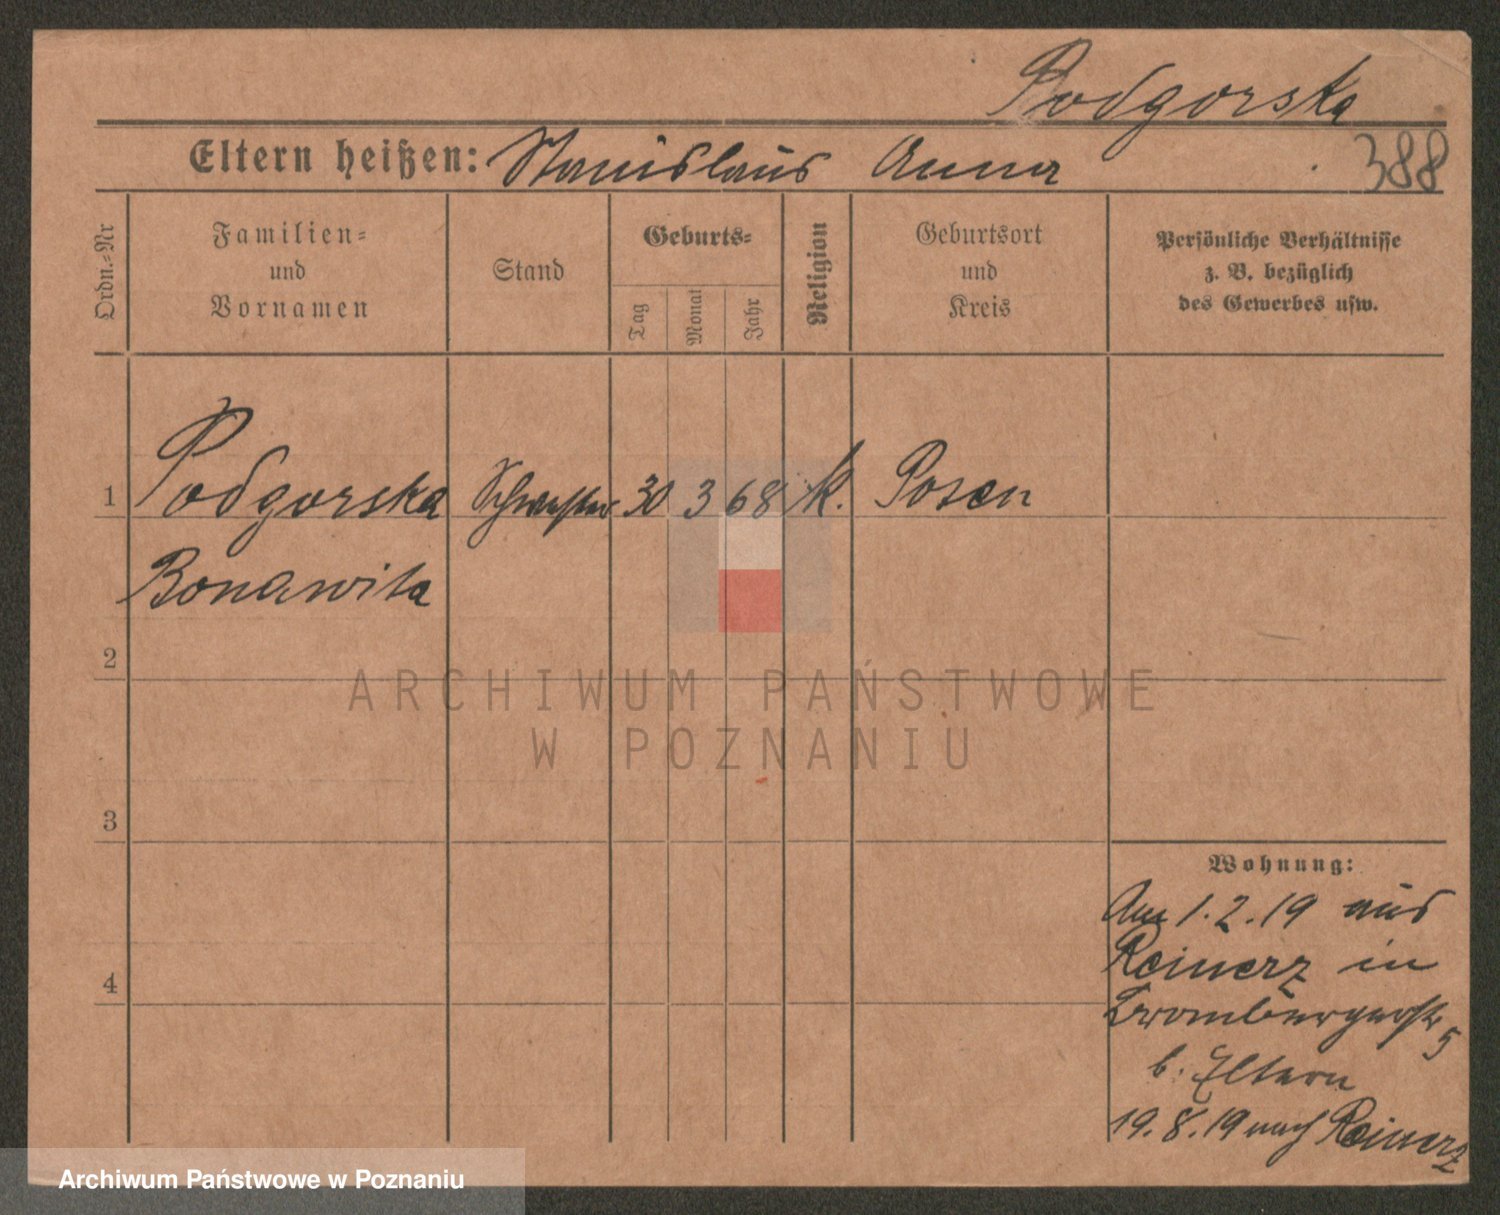 Podgorska
Eltern heißen: Stanislaus Anna
388
Ordn.=Nr
Familien=
und
Vornamen
Stand
Geburts=
Tag
Monat
Jahr
Religion
Geburtsort
und
Kreis
Persönliche Verhältnisse
z. B. bezüglich
des Gewerbes usw.
1 Podgorska Schwester 30 3 68 k. Posen
Bonawita
2
3
4
Wohnung:
Am 1.2.19 aus
Reinerz in
Brombergerstr
5
b. Eltern
19.8.19 nach Reinerz
ARCHIWUM PAŃSTWOWE
W POZNANIU
Archiwum Państwowe w Poznaniu